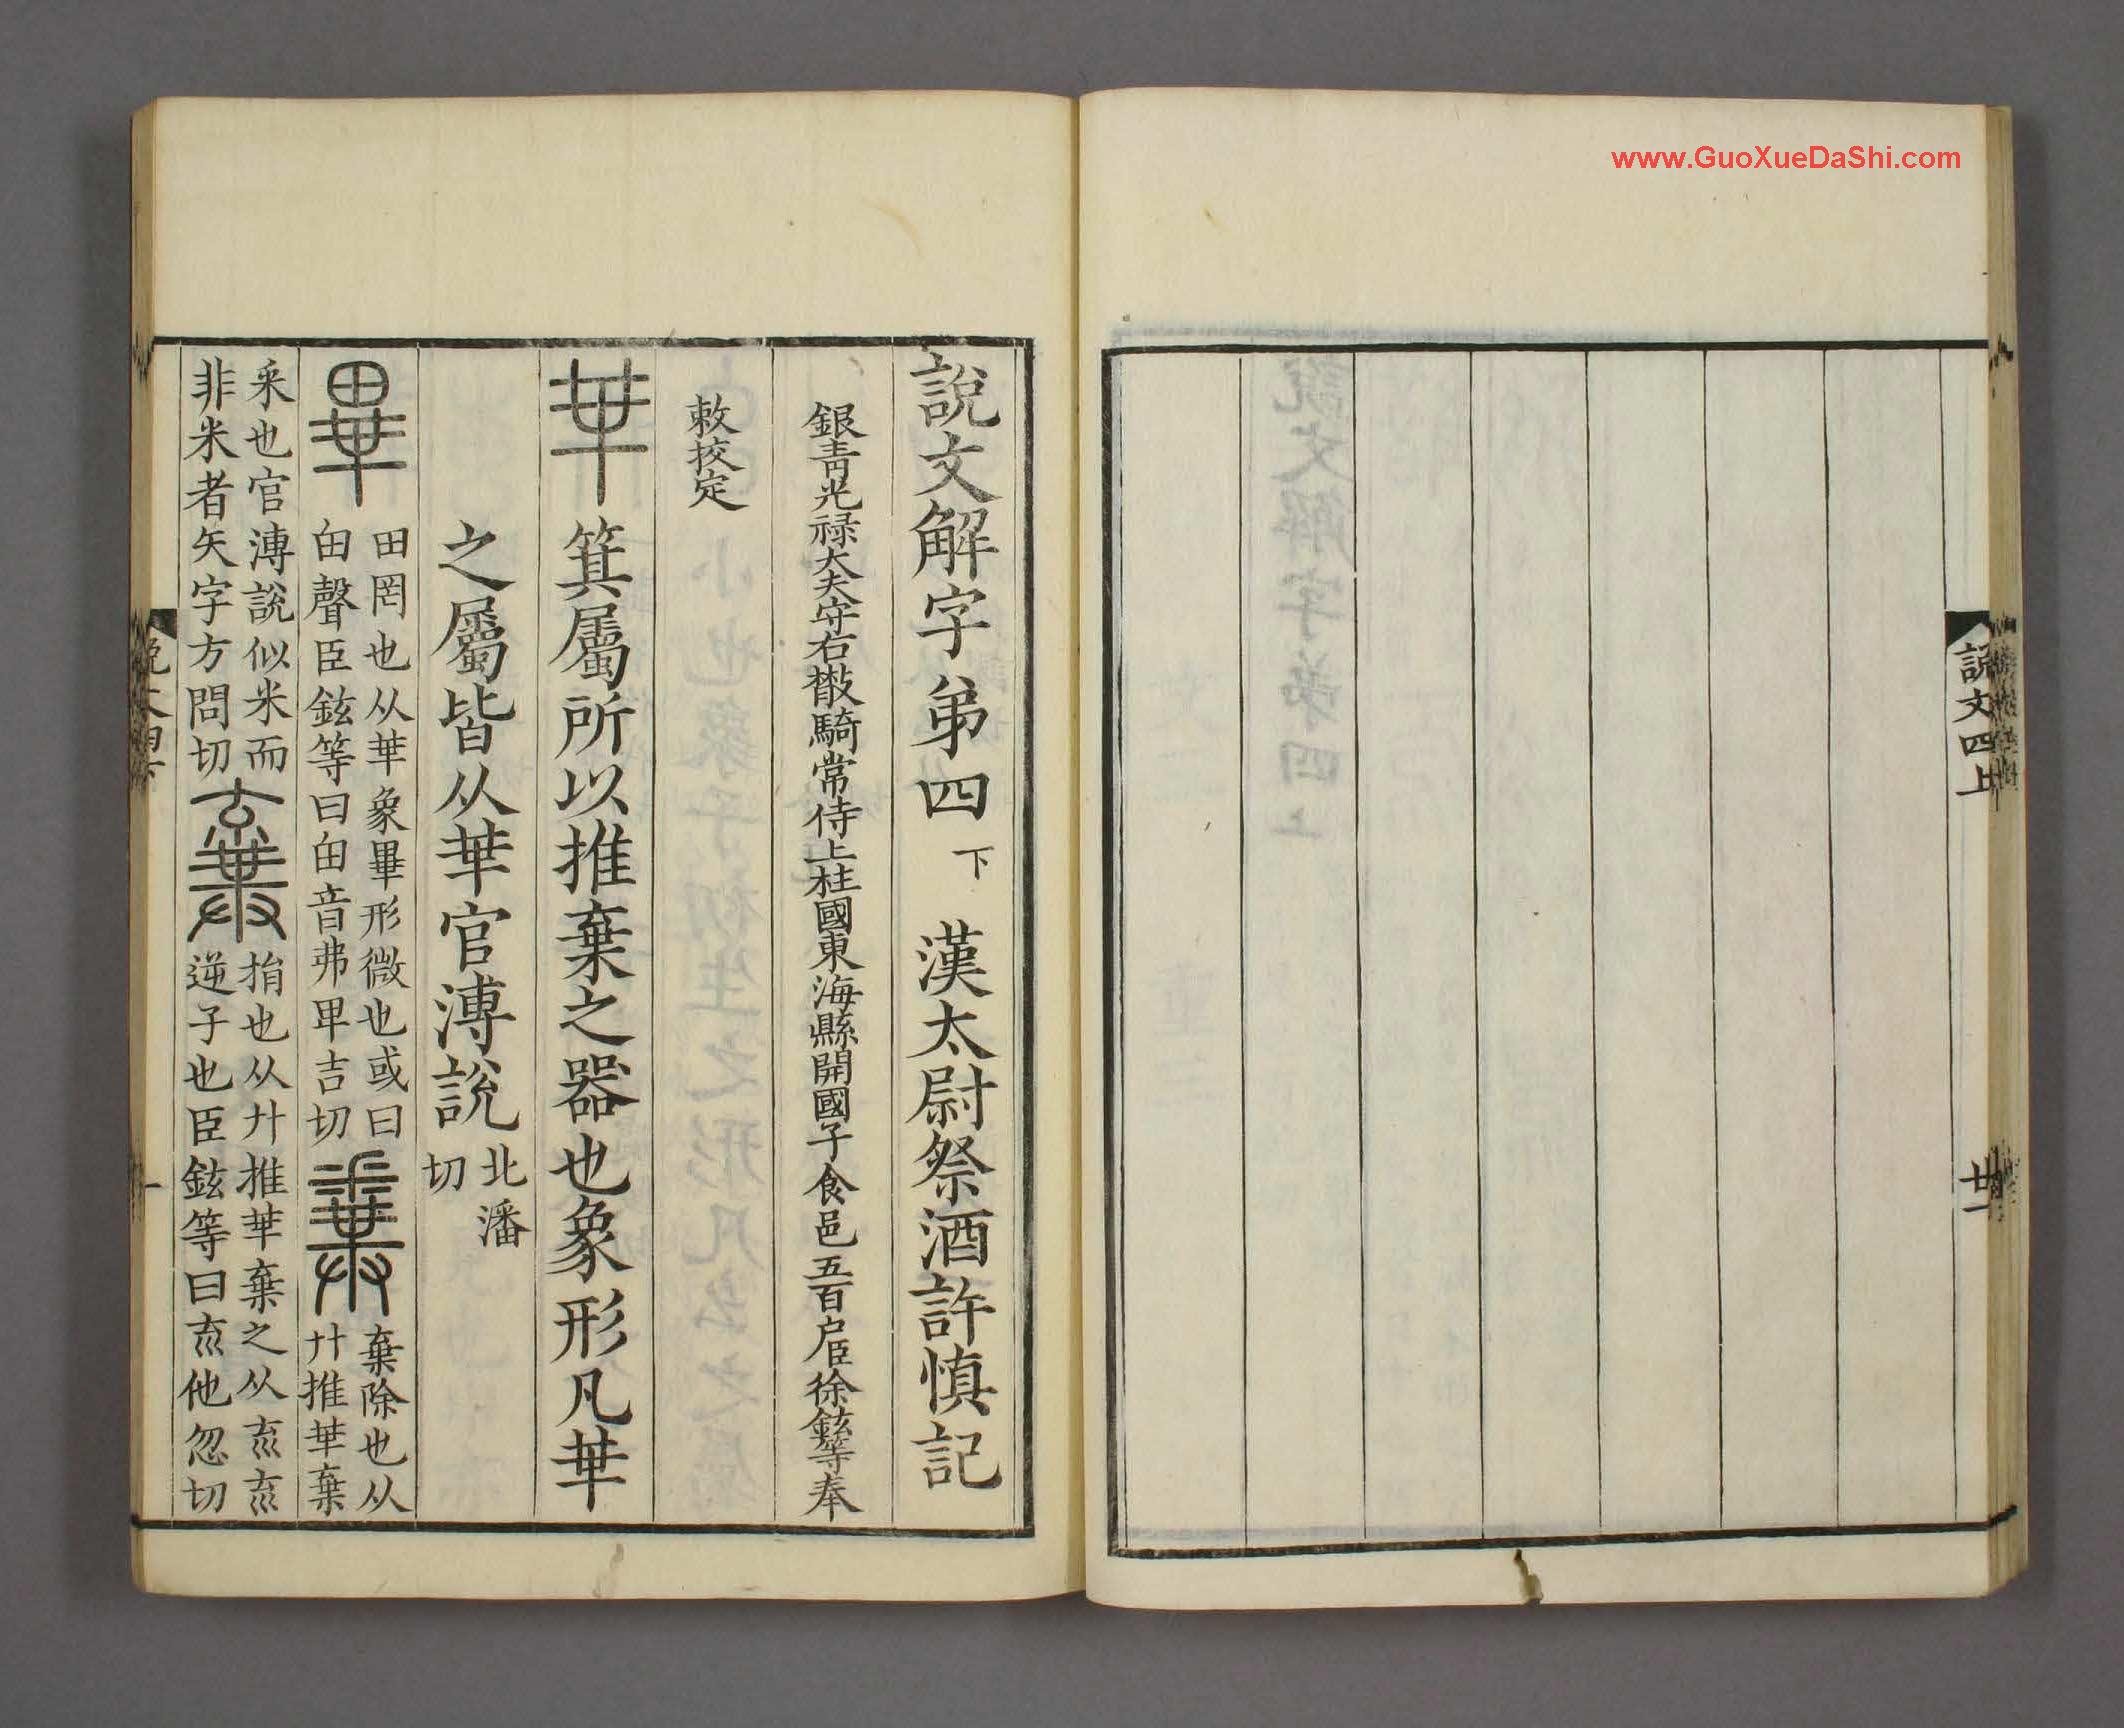 www.GuoXueDaShi.com
說文四上
廿一
說文解字弟四下 漢太尉祭酒許慎記
銀青光禄大夫守右散騎常侍上柱國東海縣開國子食邑五百户臣徐鉉等奉
敕挍定
𠦒 箕屬所以推棄之器也象形凡𠦒
之屬皆从𠦒官溥說北潘切
畢 田罔也从𠦒象畢形微也或曰甶聲臣鉉等曰甶音弗卑吉切 𡊄 棄除也从廾推𠦒棄
釆也官溥說似米而非米者矢字方問切 棄 捐也从廾推𠦒棄之从𠫓𠫓逆子也臣鉉等曰𠫓他忽切